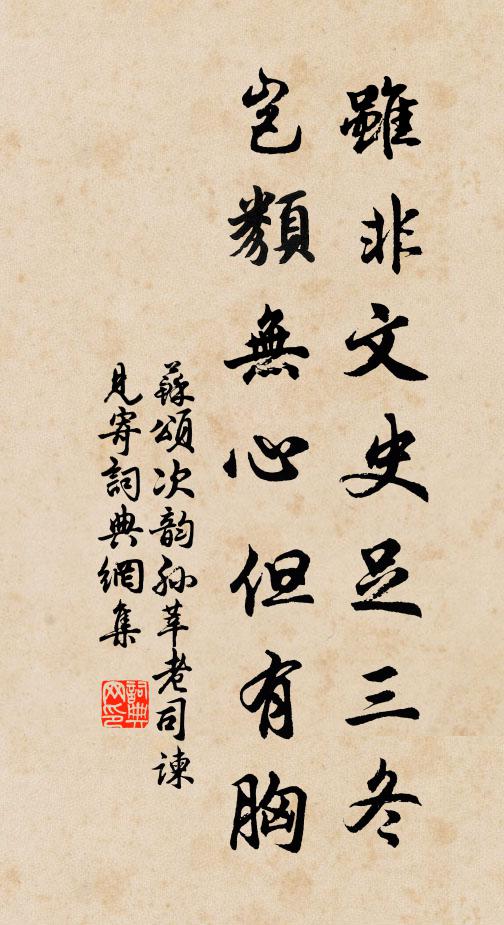 雖非文史足三冬
豈類無心但有胸
蘇頌次韵孙莘老司諫
見寄詞典網集
詞典
网印